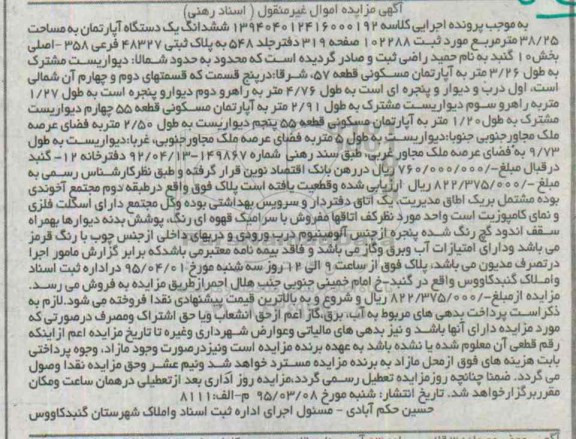 آگهی مزایده اموال غیرمنقول ( اسناد رهنی)
به موجب پرونده اجرایی کلاسه ۱۳۹۴۰۴۰۱۲۴۱۶۰۰۰۱۹۲ ششدانگ یک دستگاه آپارتمان به مساحت
۳۸/۲۵ مترمربع مورد ثبت ۱۰۲۲۸۸ صفحه ۳۱۹ دفترجلد ۵۴۸ به پلاک ثبتی ۴۸۳۲۷ فرعی ۳۵۸ -اصلی
بخش۱۰ گنبد به نام حمید راضی ثبت و صادر گردیده است که محدود به حدود شمالا: دیواریست مشترک
به طول ۳/۲۶ متر به آپارتمان مسکونی قطعه ۵۷، شرقا:درپنج قسمت که قسمتهای دوم و چهارم آن شمالی
است، اول درب و دیوار و پنجره ای است به طول ۴/۷۶ متر به راهرو دوم دیوارو پنجره است به طول ۱/۲۷
متربه راهرو سوم دیواریست مشترک به طول ۲/۹۱ متر به آپارتمان مسکونی قطعه ۵۵ چهارم دیواریست
مشترک به طول ۱/۲۰ متر به آپارتمان مسکونی قطعه ۵۵ پنجم دیواریست به طول ۲/۵۰ متربه فضای عرصه
ملک مجاورجنوبی جنوبا:دیواریست به طول ۵ متربه فضای عرصه ملک مجاورجنوبی، غربا:دیواریست به طول
۹/۷۳ به فضای عرصه ملک مجاور غربی، طبق سند رهنی شماره ۱۴۹۸۶۷-۹۲/۰۴/۱۳ دفترخانه ۱۲- گنبد
درقبال مبلغ-/۷۶۰/۰۰۰/۰۰۰ ریال دررهن بانک اقتصاد نوین قرار گرفته و طبق نظرکارشناس رسمی به
مبلغ -/۸۲۲/۳۷۵/۰۰۰ ریال ارزیابی شده وقطعیت یافته است پلاک فوق واقع درطبقه دوم مجتمع آخوندی
بوده مشتمل بریک اطاق مدیریت، یک اتاق دفتردار و سرویس بهداشتی بوده وکل مجتمع دارای اسکلت فلزی
و نمای کامپوزیت است واحد مورد نظرکف اتاقها مفروش با سرامیک قهوه ای رنگ، پوشش بدنه دیوارها بهمراه
سقف اندود گچ رنگ شده پنجره ازجنس آلومینیوم درب ورودی و دربهای داخلی ازجنس چوب با رنگ قرمز
می باشد ودارای امتیازات آب وبرق وگاز می باشد و فاقد بیمه نامه معتبرمی باشدکه برابر گزارش مامور اجرا
درتصرف مدیون می باشد، پلاک فوق از ساعت ۹ الی ۱۲ روز سه شنبه مورخ ۹۵/۰۴/۰۱ دراداره ثبت اسناد
واملاک گنبدکاووس واقع در گنبد-خ امام خمینی جنوبی جنب هلال احمرازطریق مزایده به فروش می رسد.
مزایده ازمبلغ-/۸۲۲/۳۷۵/۰۰۰ ریال و شروع و به بالاترین قیمت پیشنهادی نقدا فروخته می شود.لازم به
ذکراست پرداخت بدهی های مربوط به آب، برق،گاز اعم ازحق انشعاب ویا حق اشتراک ومصرف درصورتی که
مورد مزایده دارای آنها باشد و نیز بدهی های مالیاتی وعوارض شهرداری وغیره تا تاریخ مزایده اعم ازاینکه
رقم قطعی آن معلوم شده یا نشده باشد به عهده برنده مزایده است ونیزدرصورت وجود مازاد، وجوه پرداختی
بابت هزینه های فوق ازمحل مازاد به برنده مزایده مسترد خواهد شد ونیم عشر وحق مزایده نقدا وصول
می گردد. ضمنا چنانچه روزمزایده تعطیل رسمی گردد،مزایده روز اداری بعد ازتعطیلی درهمان ساعت ومکان
مقرربرگزارخواهد شد. تاریخ انتشار: شنبه مورخ ۹۵/۰۳/۰۸ م-الف:۸۱۱۱
حسین حکم آبادی - مسئول اجرای اداره ثبت اسناد واملاک شهرستان گنبدکاووس